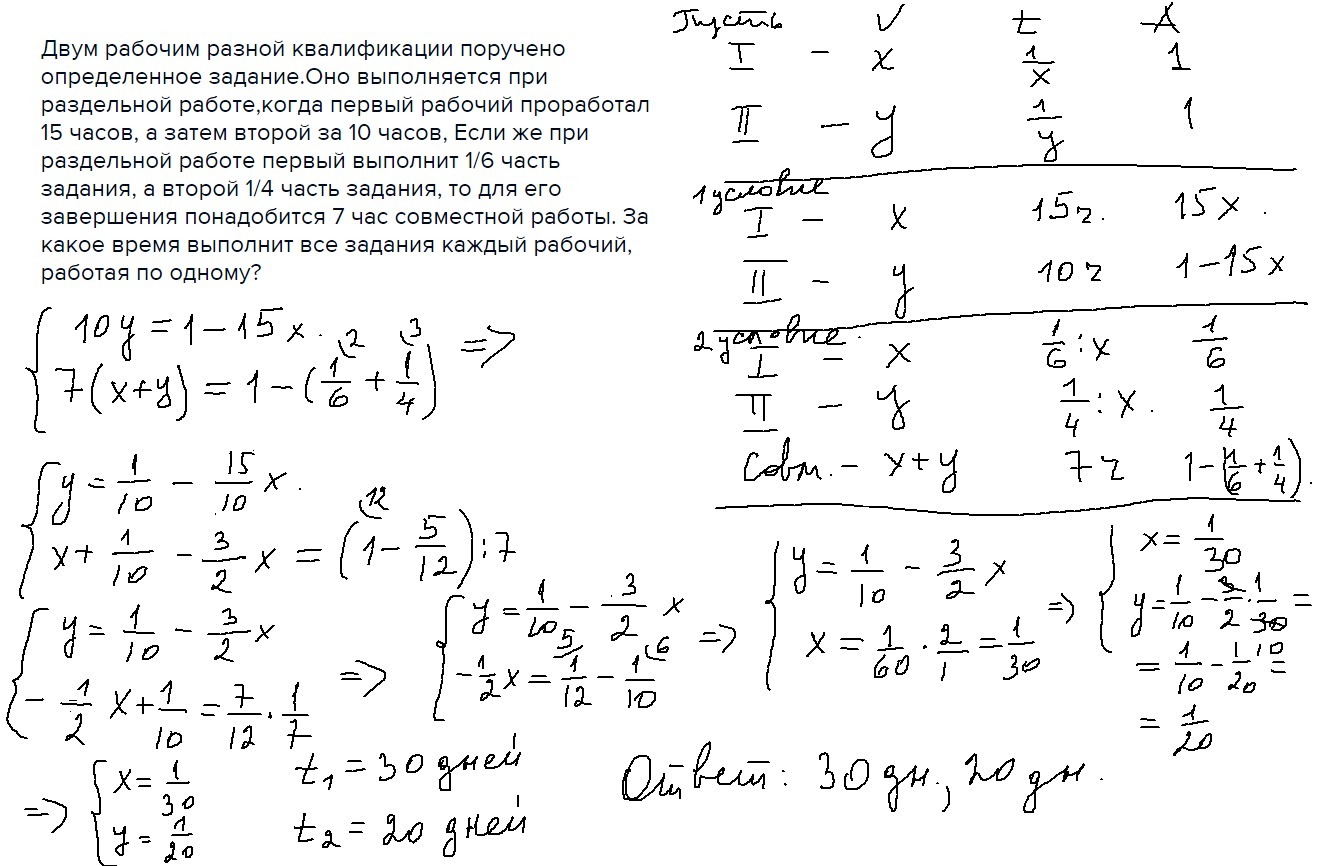 Двум рабочим разной квалификации поручено
определенное задание.Оно выполняется при
раздельной работе,когда первый рабочий проработал
15 часов, а затем второй за 10 часов, Если же при
раздельной работе первый выполнит 1/6 часть
задания, а второй 1/4 часть задания, то для его
завершения понадобится 7 час совместной работы. За
какое время выполнит все задания каждый рабочий,
работая по одному?
Пусть V t A
I – x 1/x 1
II – y 1/y 1
1 условие
I – x 15ч. 15x.
II – y 10ч 1-15x
2 условие
I – x 1/6 : x 1/6
II – y 1/4 : x. 1/4
Совм. – x+y 7ч 1-(1/6+1/4).
10y = 1-15x.
7(x+y) = 1-(1/6 2 + 1/4 3) =>
y = 1/10 - 15/10 x.
x + 1/10 - 3/2 x = (1 12 - 5/12) : 7
y = 1/10 - 3/2 x
- 1/2 x + 1/10 = 7/12 · 1/7 =>
y = 1/10 - 3/2 x
- 1/2 x = 1/12 5 - 1/10 6 =>
y = 1/10 - 3/2 x
x = 1/60 · 2/1 = 1/30 =>
x = 1/30
y = 1/10 - 3/2 · 1/30 10 =
= 1/10 - 1/20 =
= 1/20
=> x = 1/30
y = 1/20
t₁ = 30 дней
t₂ = 20 дней
Ответ: 30 дн., 20 дн.